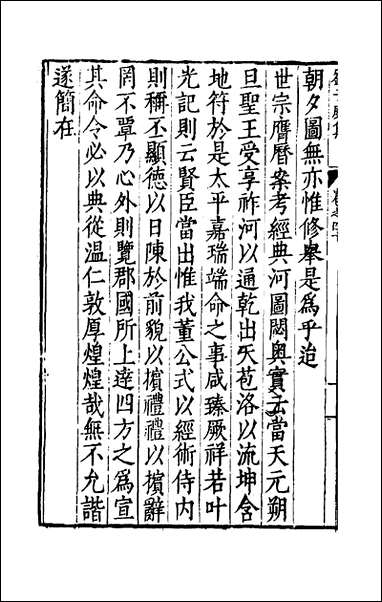 朝夕圖無亦惟修舉是為乎迨
世宗膺曆案考經典河圖閟奧實云當天元朔
旦聖王受享祚河以通乾出天苞洛以流坤含
地符於是太平嘉瑞端命之事咸臻厥祥若叶
光記則云賢臣當出惟我董公式以經術侍內
則稱丕顯德以日陳於前貌以擯禮禮以擯辭
罔不單乃心外則覽郡國所上達四方之為宣
其命令必以典從温仁敦厚煌煌哉無不允諧
遂簡在